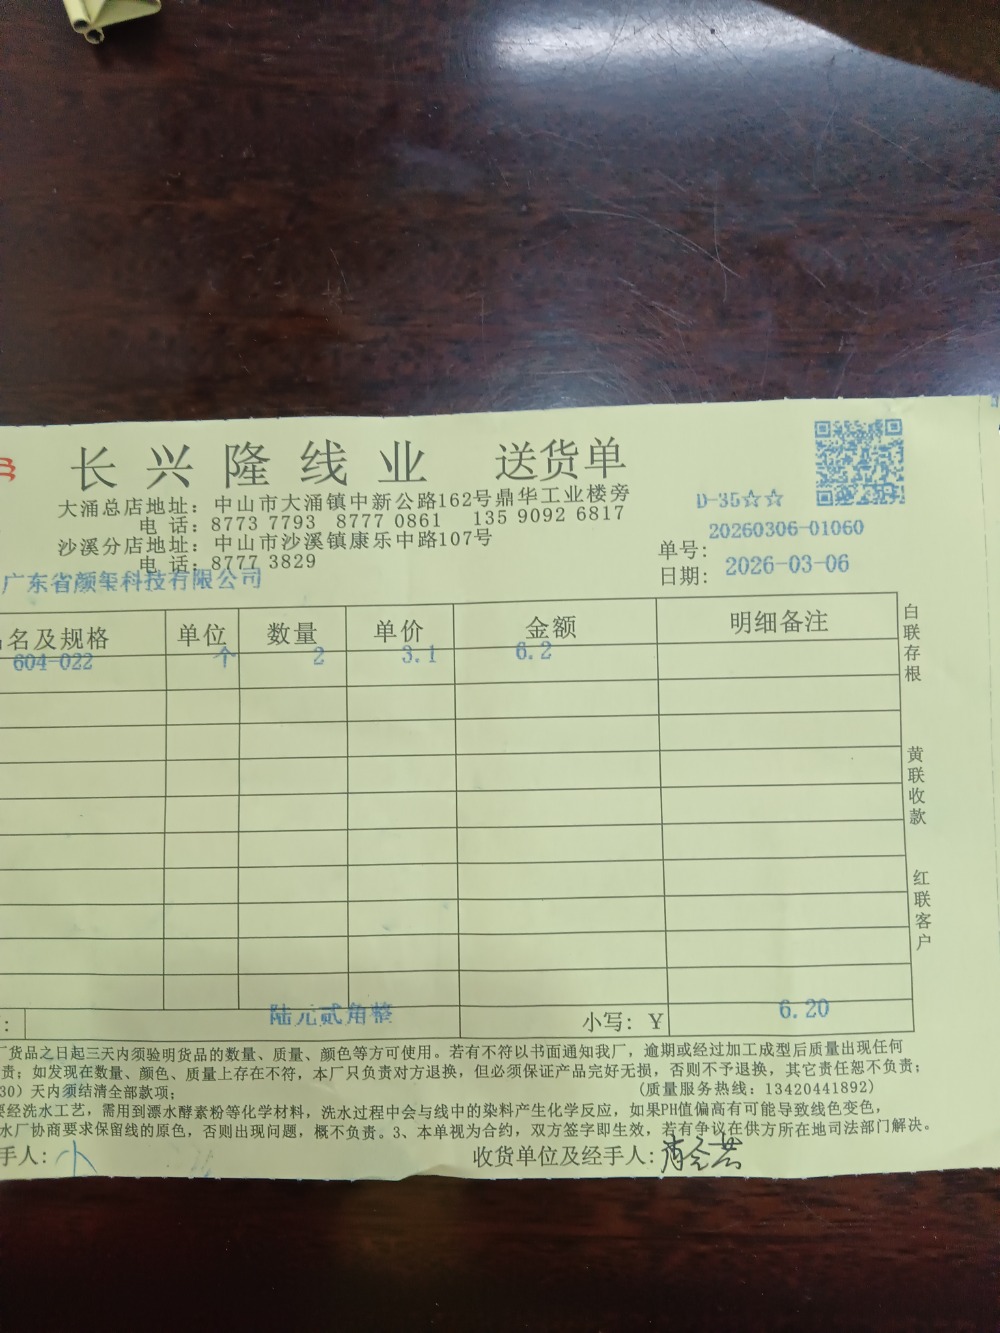 长兴隆线业 送货单
大涌总店地址：中山市大涌镇中新公路162号鼎华工业楼旁
电 话：8773 7793 8777 0861 135 9092 6817
沙溪分店地址：中山市沙溪镇康乐中路107号
电 话：8777 3829
D-35☆☆
单号：20260306-01060
日期：2026-03-06
广东省颜玺科技有限公司
名及规格 单位 数量 单价 金额 明细备注
604-022 个 2 3.1 6.2
白联存根
黄联收款
红联客户
： 陆元贰角整 小写：￥ 6.20
厂货品之日起三天内须验明货品的数量、质量、颜色等方可使用。若有不符以书面通知我厂，逾期或经过加工成型后质量出现任何
责；如发现在数量、颜色、质量上存在不符，本厂只负责对方退换，但必须保证产品完好无损，否则不予退换，其它责任恕不负责；
30）天内须结清全部款项； （质量服务热线：13420441892）
要经洗水工艺，需用到漂水酵素粉等化学材料，洗水过程中会与线中的染料产生化学反应，如果PH值偏高有可能导致线色变色，
水厂协商要求保留线的原色，否则出现问题，概不负责。3、本单视为合约，双方签字即生效，若有争议在供方所在地司法部门解决。
手人： 收货单位及经手人：